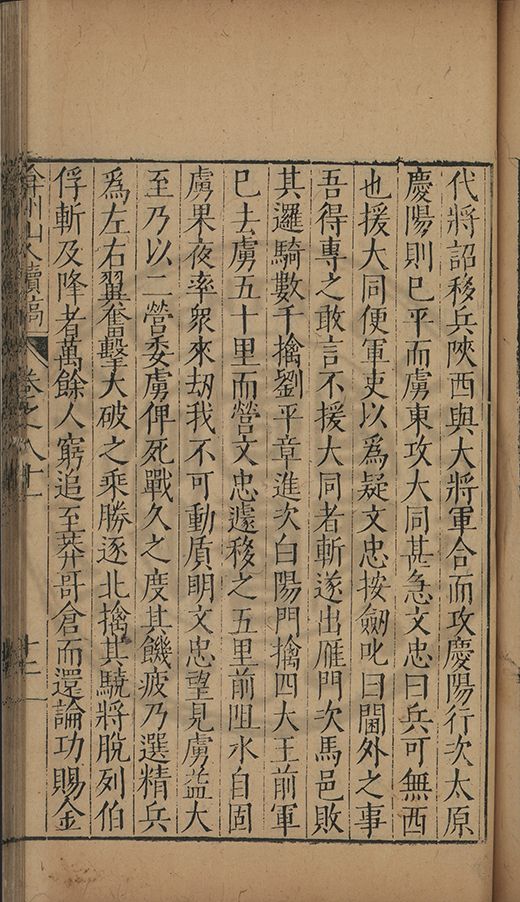 代將詔移兵陝西與大將軍合而攻慶陽行次太原
慶陽則已平而虜東攻大同甚急文忠曰兵可無西
也援大同便軍吏以爲疑文忠按劒叱曰閫外之事
吾得專之敢言不援大同者斬遂出雁門次馬邑敗
其邏騎數千擒劉平章進次白陽門擒四大王前軍
巳去虜五十里而營文忠遽移之五里前阻水自固
虜果夜率衆來刼我不可動質明文忠望見虜益大
至乃以二營委虜俾死戰久之度其饑疲乃選精兵
爲左右翼奮擊大破之乘勝逐北擒其驍將脫列伯
俘斬及降者萬餘人窮追至莽哥倉而還論功賜金
弇州山人續稿 卷之八十一 十二